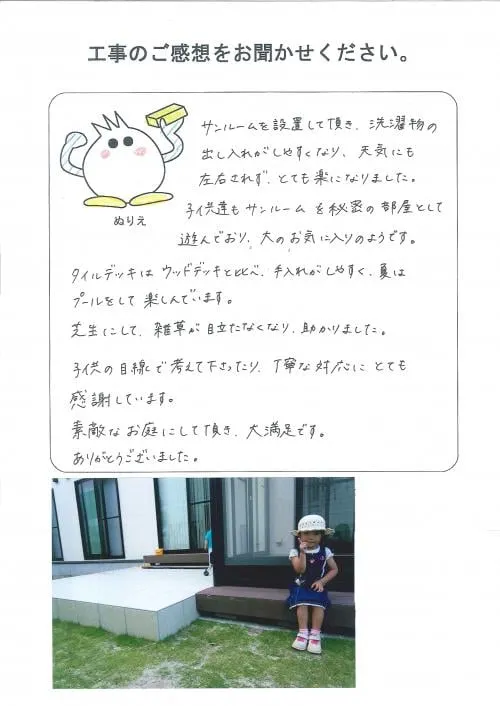 工事のご感想をお聞かせください。
サンルームを設置して頂き、洗濯物の
出し入れがしやすくなり、天気にも
左右されず、とても楽になりました。
子供達もサンルームを秘密の部屋として
遊んでおり、大のお気に入りのようです。
ぬりえ
タイルデッキはウッドデッキと比べ、手入れがしやすく、夏は
プールをして楽しんでいます。
芝生にして、雑草が目立たなくなり、助かりました。
子供の目線で考えて下さったり、丁寧な対応にとても
感謝しています。
素敵なお庭にして頂き、大満足です。
ありがとうございました。